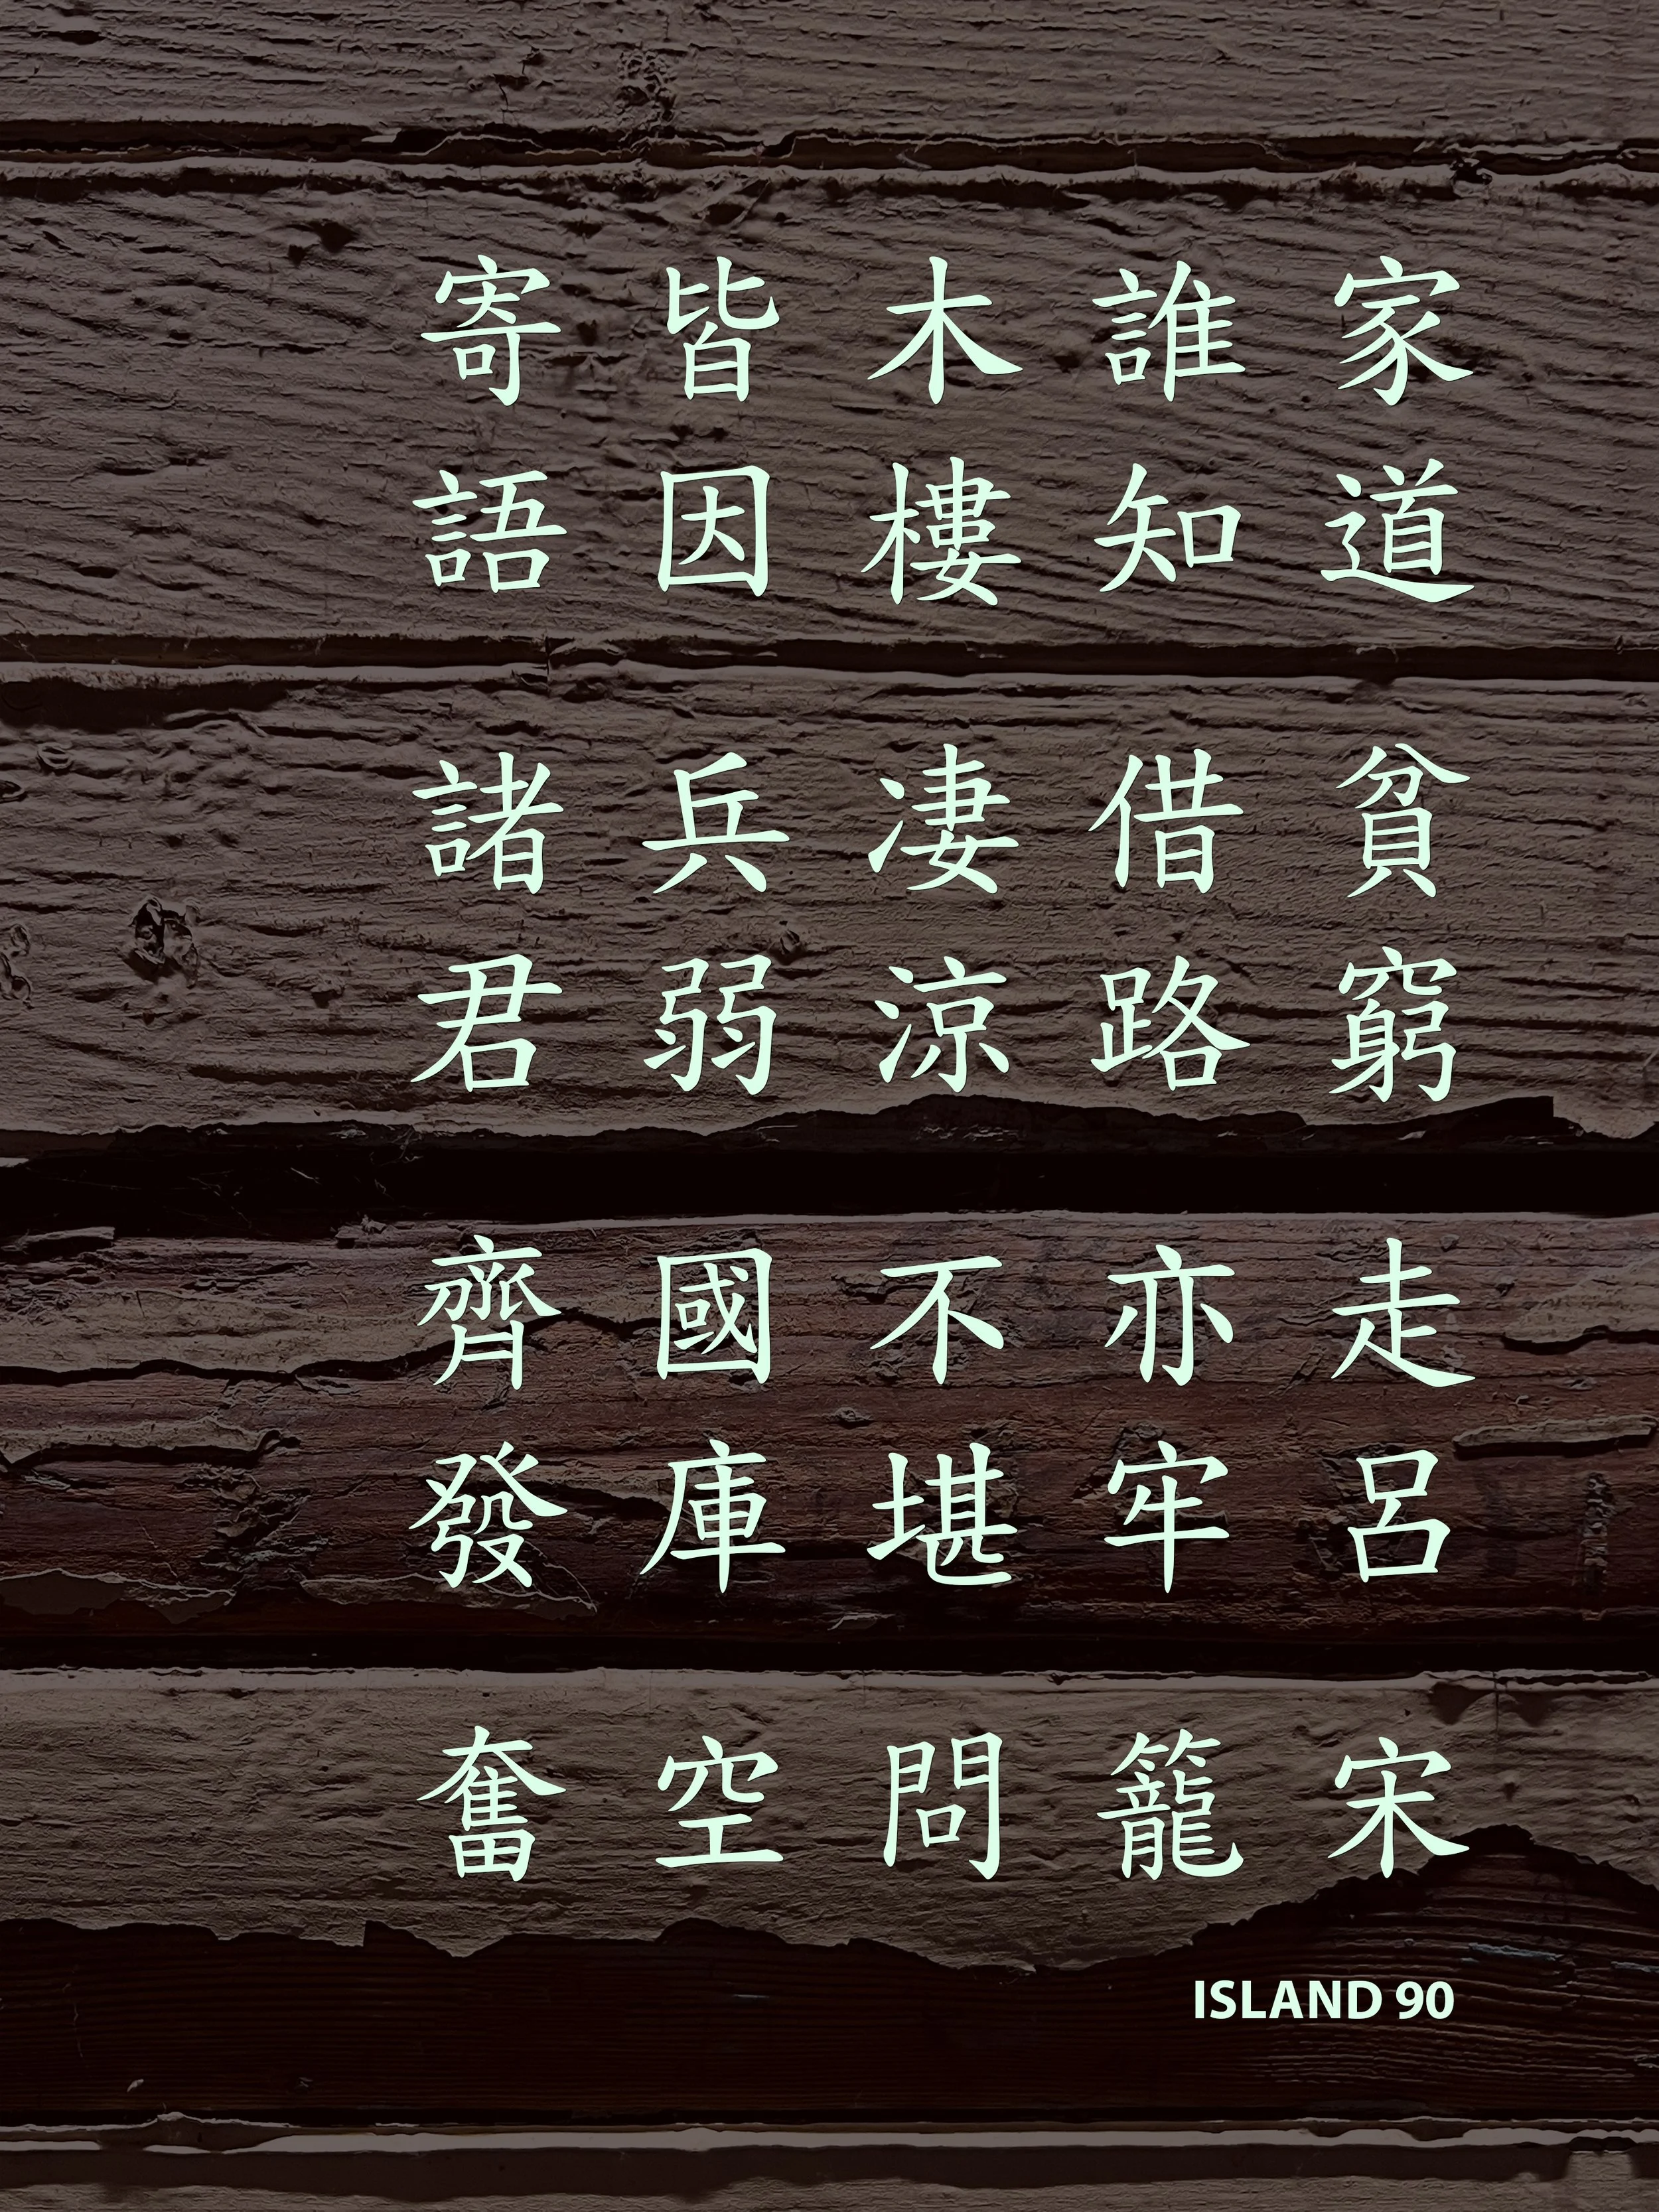 家道貧窮走呂宋
誰知借路亦牢籠
木樓凄涼不堪問
皆因兵弱國庫空
寄語諸君齊發奮
ISLAND 90